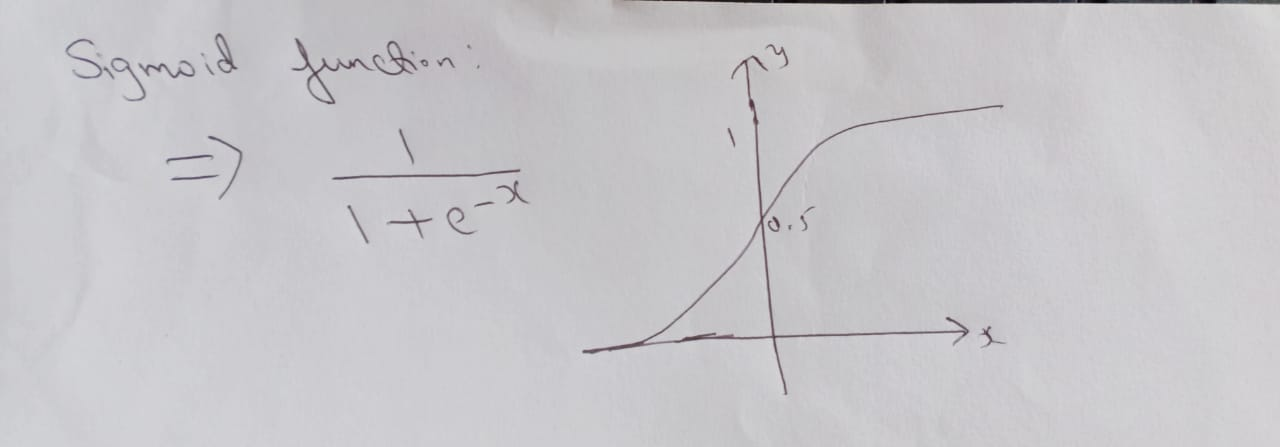 Sigmoid function:
⇒ 1
1+e^-x
y
1
0.5
x